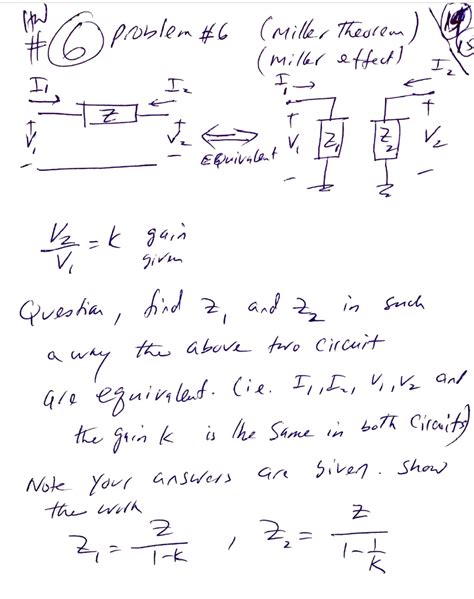 HW
# 6 problem #6 (Miller Theorem)
(miller effect)
I₁ I₂ I₁ I₂
Z
+ + + +
V₁ V₂ Equivalent V₁ Z₁ Z₂ V₂
- - - -
V₂/V₁ = k gain
given
Question, find Z₁ and Z₂ in such
a way the above two circuit
are equivalent. (ie. I₁, I₂, V₁, V₂ and
the gain k is the same in both circuits)
Note your answers are given. show
the work
Z₁ = Z/(1-k) , Z₂ = Z/(1-1/k)